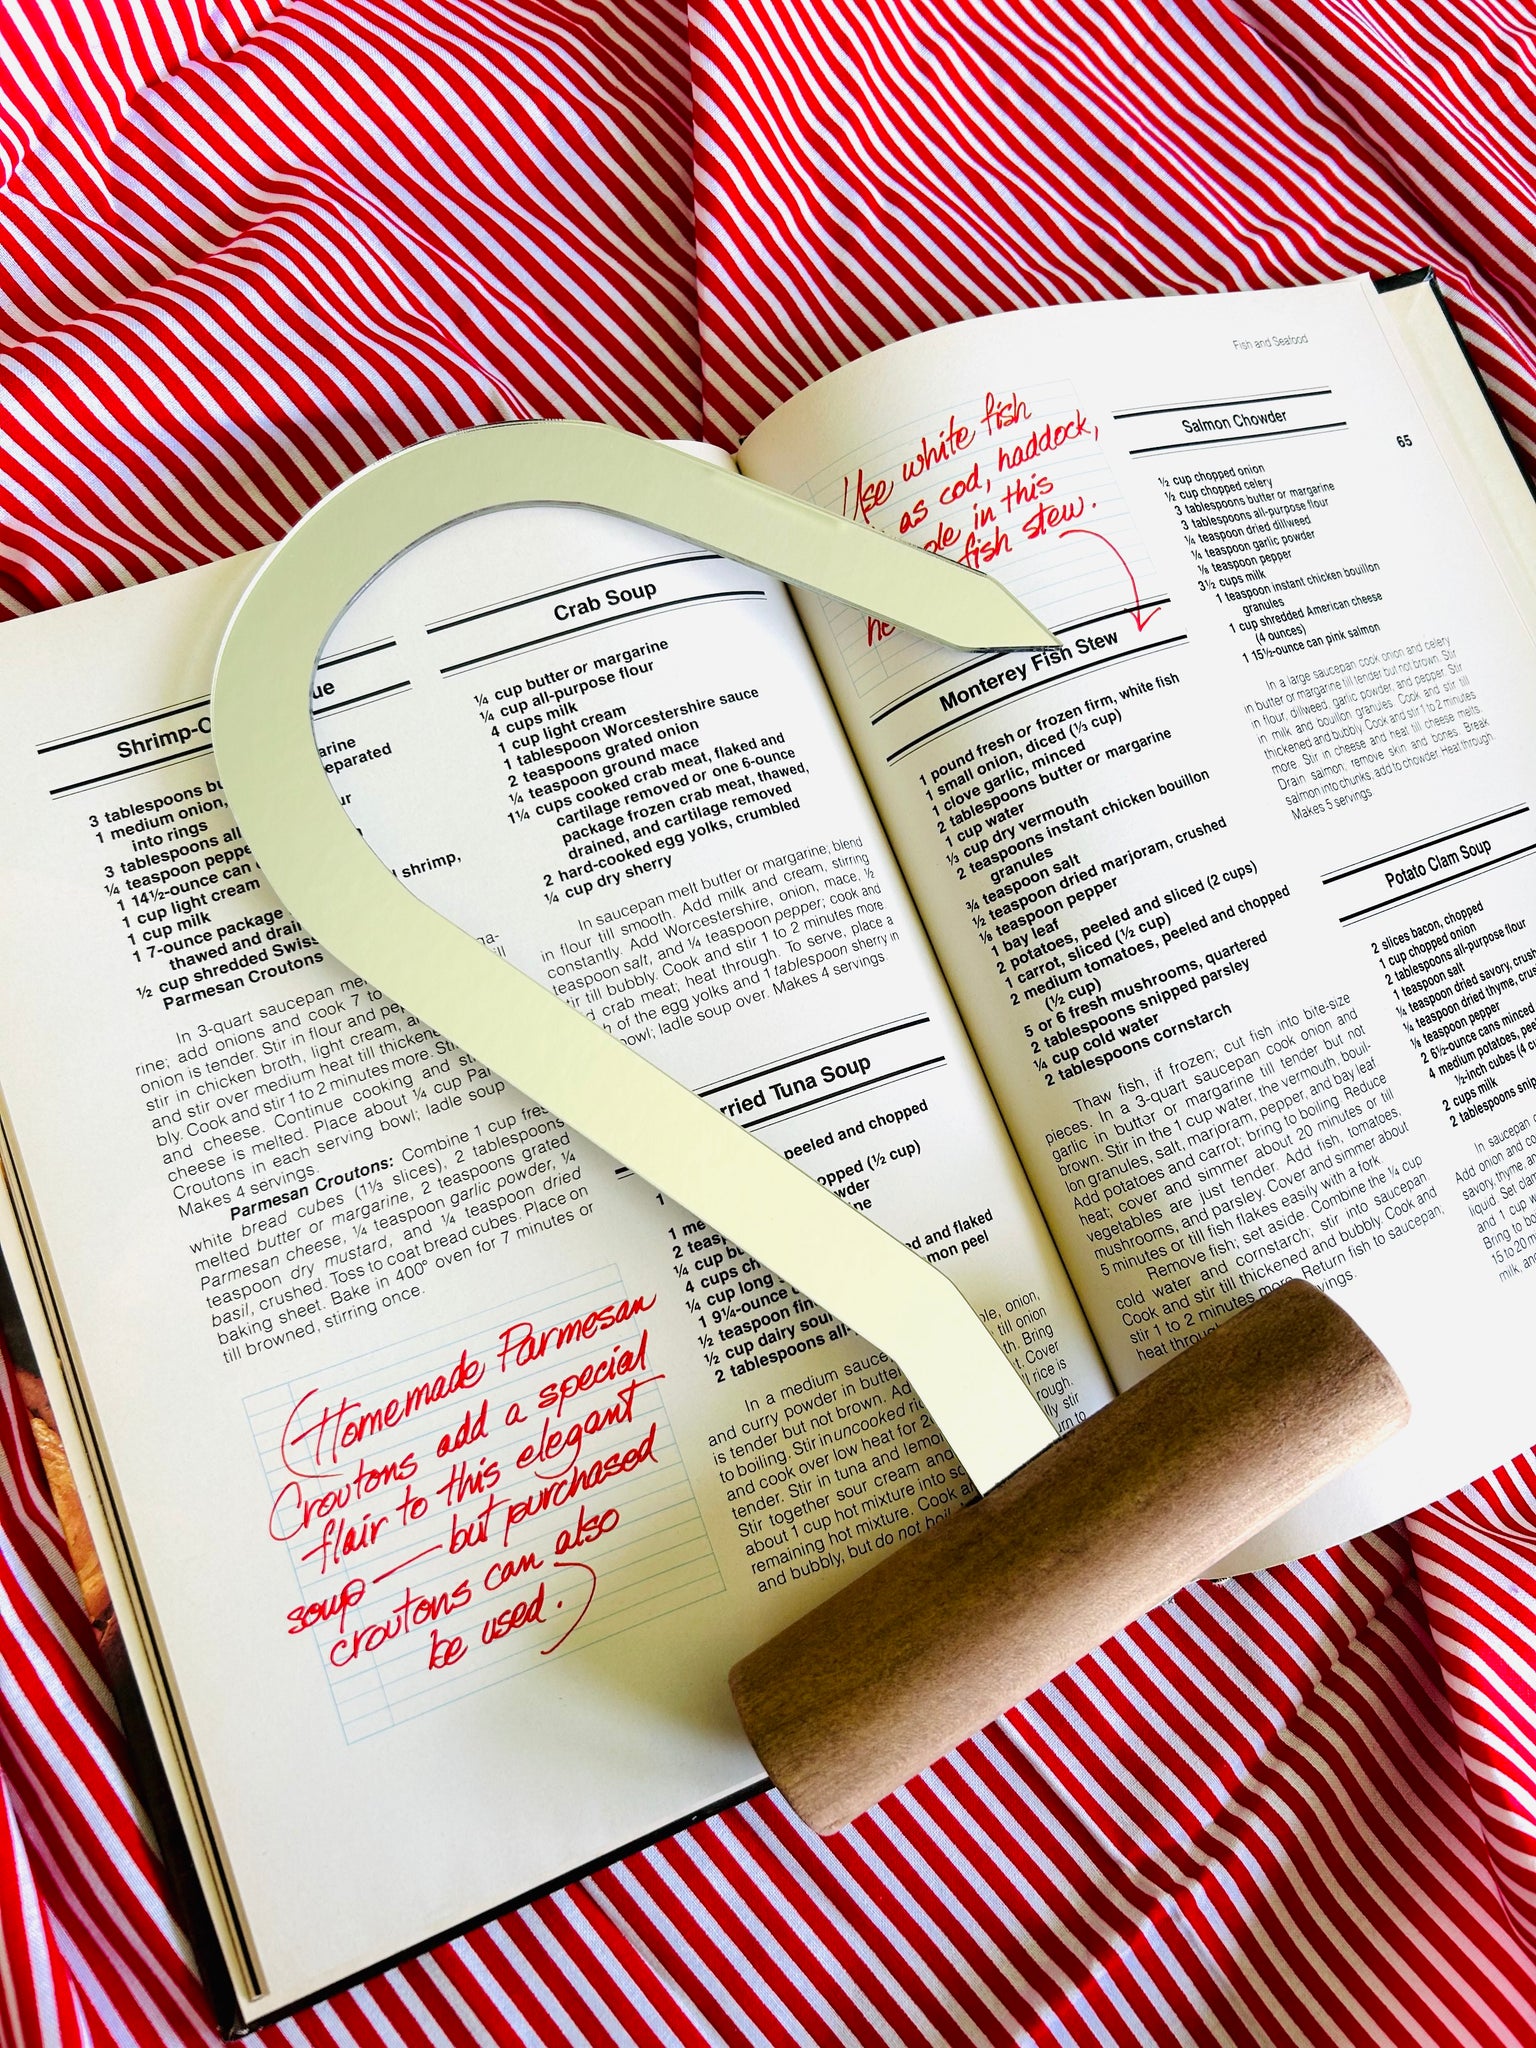 Shrimp-
ue
3 tablespoons
arine
1 medium onion,
eparated
into rings
3 tablespoons all
ur
¼ teaspoon
1 14½-ounce can
1 cup light cream
1 cup milk
1 7-ounce package
shrimp,
thawed and
½ cup shredded
Parmesan Croutons
In 3-quart saucepan
rine; add onions and cook 7 to
onion is tender. Stir in flour and
stir in chicken broth, light cream,
and stir over medium heat till
bly. Cook and stir 1 to 2 minutes more.
and cheese. Continue cooking and
cheese is melted. Place about ¼ cup
Croutons in each serving bowl; ladle soup
Makes 4 servings.
Parmesan Croutons: Combine 1 cup
white bread cubes (1⅓ slices), 2 tablespoons
melted butter or margarine, 2 teaspoons grated
Parmesan cheese, ¼ teaspoon garlic powder, ¼
teaspoon dry mustard, and ¼ teaspoon dried
basil, crushed. Toss to coat bread cubes. Place on
baking sheet. Bake in 400° oven for 7 minutes or
till browned, stirring once.
(Homemade Parmesan
Croutons add a special
flair to this elegant
soup—but purchased
croutons can also
be used.)
Crab Soup
¼ cup butter or margarine
¼ cup all-purpose flour
4 cups milk
1 cup light cream
1 tablespoon Worcestershire sauce
2 teaspoons grated onion
¼ teaspoon ground mace
1¼ cups cooked crab meat, flaked and
cartilage removed or one 6-ounce
package frozen crab meat, thawed,
drained, and cartilage removed
2 hard-cooked egg yolks, crumbled
¼ cup dry sherry
In saucepan melt butter or margarine; blend
in flour till smooth. Add milk and cream, stirring
constantly. Add Worcestershire, onion, mace, ½
teaspoon salt, and ¼ teaspoon pepper; cook and
stir till bubbly. Cook and stir 1 to 2 minutes more
crab meat; heat through. To serve, place a
of the egg yolks and 1 tablespoon sherry in
bowl; ladle soup over. Makes 4 servings
rried Tuna Soup
peeled and chopped
opped (½ cup)
wder
ine
1
1
2
¼ cup
4 cups
¼ cup long
1 9¼-ounce
ed and flaked
½ teaspoon
mon peel
½ cup dairy sour
2 tablespoons all-
In a medium
ple, onion,
and curry powder in
till onion
is tender but not brown.
th. Bring
to boiling. Stir in uncooked
t. Cover
and cook over low heat for
rice is
tender. Stir in tuna and
rough.
Stir together sour cream and
lly stir
about 1 cup hot mixture into
urn to
remaining hot mixture. Cook
and bubbly, but do not
Fish and Seafood
65
Use white fish
as cod, haddock,
ole in this
fish stew.
Monterey Fish Stew
1 pound fresh or frozen firm, white fish
1 small onion, diced (⅓ cup)
1 clove garlic, minced
2 tablespoons butter or margarine
1 cup water
⅓ cup dry vermouth
2 teaspoons instant chicken bouillon
granules
¾ teaspoon salt
½ teaspoon dried marjoram, crushed
⅛ teaspoon pepper
1 bay leaf
2 potatoes, peeled and sliced (2 cups)
1 carrot, sliced (½ cup)
2 medium tomatoes, peeled and chopped
(½ cup)
5 or 6 fresh mushrooms, quartered
2 tablespoons snipped parsley
¼ cup cold water
2 tablespoons cornstarch
Thaw fish, if frozen; cut fish into bite-size
pieces. In a 3-quart saucepan cook onion and
garlic in butter or margarine till tender but not
brown. Stir in the 1 cup water, the vermouth, bouil-
lon granules, salt, marjoram, pepper, and bay leaf.
Add potatoes and carrot; bring to boiling. Reduce
heat; cover and simmer about 20 minutes or till
vegetables are just tender. Add fish, tomatoes,
mushrooms, and parsley. Cover and simmer about
5 minutes or till fish flakes easily with a fork.
Remove fish; set aside. Combine the ¼ cup
cold water and cornstarch; stir into saucepan.
Cook and stir till thickened and bubbly. Cook and
stir 1 to 2 minutes more. Return fish to saucepan;
heat through. vings.
Salmon Chowder
½ cup chopped onion
½ cup chopped celery
3 tablespoons butter or margarine
3 tablespoons all-purpose flour
¼ teaspoon dried dillweed
¼ teaspoon garlic powder
⅛ teaspoon pepper
3½ cups milk
1 teaspoon instant chicken bouillon
granules
1 cup shredded American cheese
(4 ounces)
1 15½-ounce can pink salmon
In a large saucepan cook onion and celery
in butter or margarine till tender but not brown. Stir
in flour, dillweed, garlic powder, and pepper. Stir
in milk and bouillon granules. Cook and stir till
thickened and bubbly. Cook and stir 1 to 2 minutes
more. Stir in cheese and heat till cheese melts.
Drain salmon; remove skin and bones. Break
salmon into chunks; add to chowder. Heat through.
Makes 5 servings.
Potato Clam Soup
2 slices bacon, chopped
1 cup chopped onion
2 tablespoons all-purpose flour
1 teaspoon salt
¼ teaspoon dried savory,
¼ teaspoon dried thyme,
⅛ teaspoon pepper
2 6½-ounce cans minced
4 medium potatoes,
½-inch cubes (4
2 cups milk
2 tablespoons
In saucepan
Add onion and
savory, thyme, and
liquid. Set
and 1 cup
Bring to
15 to 20
milk, and